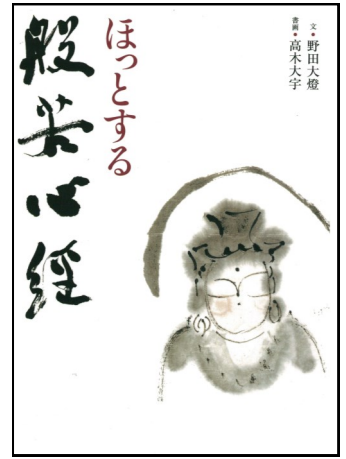 文・野田大燈
書画・高木大宇
ほっとする
般若心經